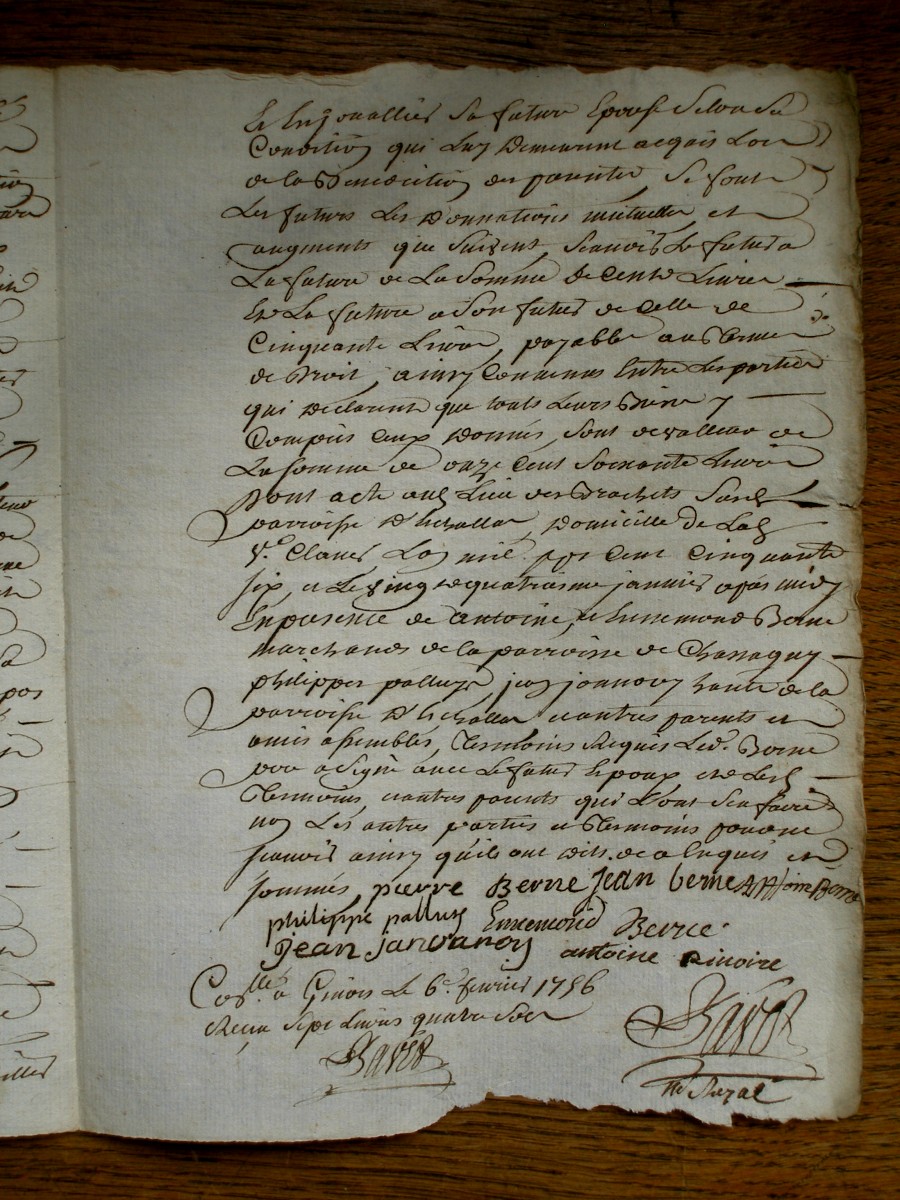 Et Enjouallier Sa future Epouse Selon Sa
Condition qui Luy Demeureront acquis Lors
de la Benediction des parties, Se font
Les futurs Les Donnations mutuelles et
augments que Suivent, Scavoir Le futur a
La future de La Somme De Cents Livres
Et La future a Son futur de Celle de
Cinquante Livres, payables aux Terme
de Droit, ainsy Convenus Entre Les parties
qui Declarent que touts Leurs Biens y
Compris ceux Donnés, sont de valleur de
La Somme de onze Cent Soixante Livres
Dont acte au Lieu des Brachets Susd
parroisse D'Echallas, Domicille de Lad
V.e Claner Lan mil sept cent cinquante
six, et Le Vingt quatrieme janvier apres midy
En presence de antoine, et Ennemond Berne
marchands de la parroisse de Chassagny
philippes palluy, jean janvary habts de la
parroisse D'Echallas et autres parents et
amis assemblés, Temoins Requis Led. Berne
pere a Signé avec Le futur Epoux et Lesd
Temoins, et autres parents qui L'ont Sceu faire
non Les autres parties et Temoins pour ne
Scavoir ainsy qu'ils ont dit. de ce Enquis et
Sommés, pierre Berne Jean berne Anthoine Berne
philippe palluy Ennemond Berne
Jean janvary antoine rivoire
Coll.e a Givors Le 6.e fevrier 1756
Recu Sept Livres quatre Sols